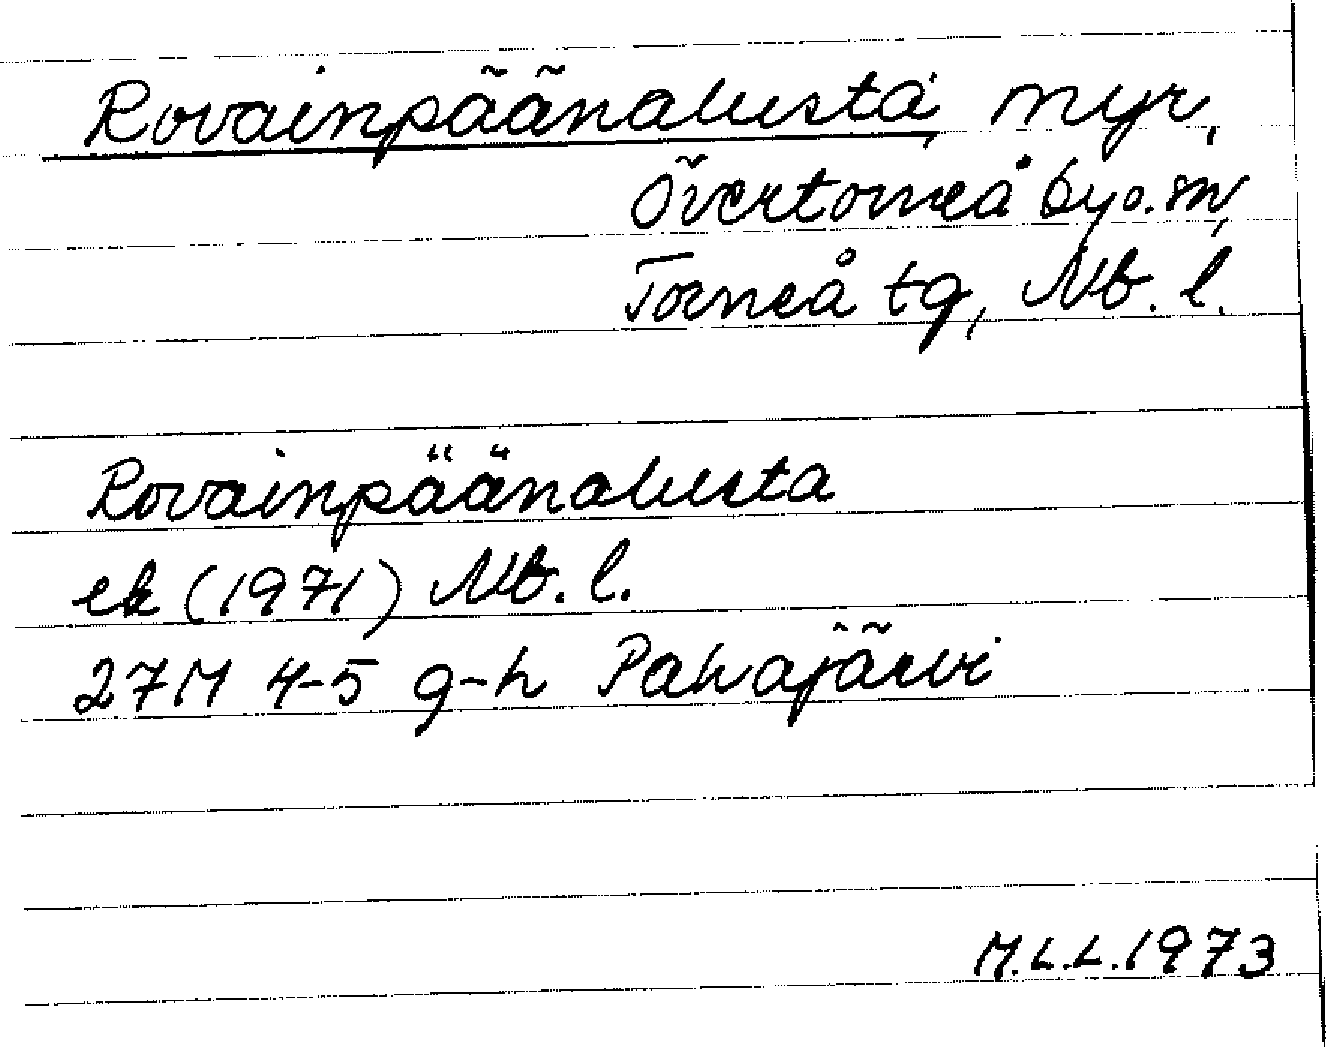 Rovainpäänalusta, myr,
Övertorneå by o. sn,
Torneå tg, Nb. l.
Rovainpäänalusta
ek (1971) Nb. l.
27M 4-5 g-h Pahajärvi
M.L.L. 1973